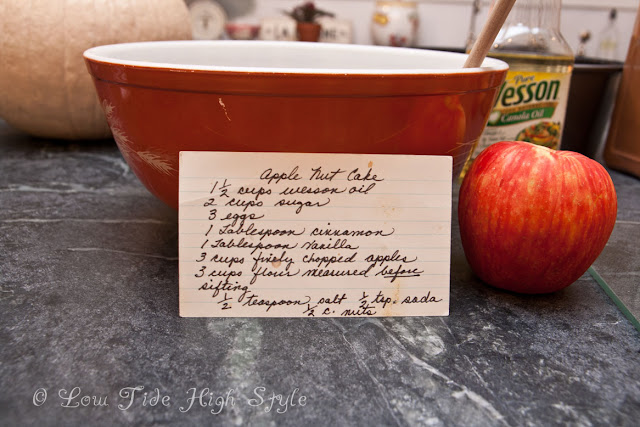 Pure
Wesson
Canola Oil
Apple Nut Cake
1 1/2 cups wesson oil
2 cups sugar
3 eggs
1 Tablespoon cinnamon
1 Tablespoon Vanilla
3 cups finely chopped apples
3 cups flour measured before
sifting
1/2 teaspoon salt 1/2 tsp. soda
1/2 c. nuts
© Low Tide High Style